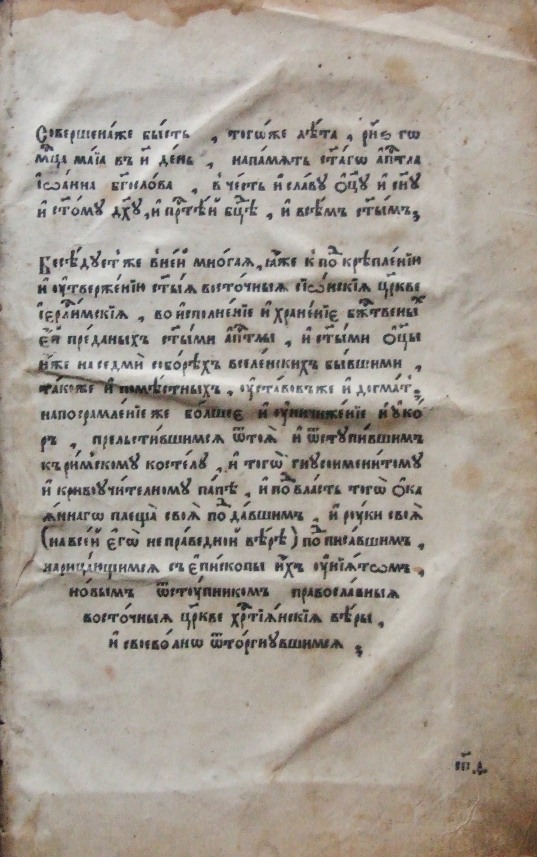 Совершенаже бы́сть , тогѡ́же лѣ́та , 
мⷭ҇ца маїа въ и҃ де́нь , напа́мѧть ст҃а́гѡ а҆пⷭ҇тла
і҆ѡа́нна бг҃осло́ва , в че́сть и҆ сла́ву ѻ҆ц҃у́ и҆ сн҃у
и҆ ст҃о́му дх҃у , и҆ прⷭ҇тѣ́й бц҃ѣ , и҆ всѣ́мъ ст҃ы́мъ ⁏
Бесѣ́дуетже в не́й мно́гаѧ , ꙗ҆́же к поⷣкрѣпле́нїи
и҆ ᲂу҆твержє́нїи ст҃ы́ѧ восто́чныѧ сїѡ́нскїѧ цр҃кве
і҆ерⷭ҇ли́мскїѧ , во и҆сполне́нїе и҆ хране́нїе бж҃твеныⷯ
є҆́й преда́ныхъ ст҃ы́ми а҆пⷭ҇тлы , и҆ ст҃ы́ми ѻ҆ц҃ы
и҆́же на седмѝ собо́рѣхъ вселе́нскихъ бы́вшими ,
та́коже и҆ помѣ́стныхъ , ᲂу҆ста́вовъже и҆ догма́т ⁏
напосрамле́нїе же бо́лшее и҆ ᲂу҆ничиже́нїе и҆ ᲂу҆ко́
ръ , прельсти́вшимсѧ ѿ тоѧ̀ и҆ ѿступи́вшимъ
къ ри́мскому косте́лу , и҆ тогѡ̀ гнусоимени́тому
и҆ кривоучи́телному па́пѣ , и҆ поⷣ вла́сть тогѡ̀ ѻ҆ка
ѧ́ннагѡ плеща̀ своѧ̀ поⷣда́вшимъ , и҆ ро́уки своѧ̀
( на все́й є҆гѡ̀ непра́ведной вѣ́рѣ ) поⷣписа́вшимъ ,
нарица́ющимсѧ съ є҆пи́скопы и҆́хъ ᲂу҆нїѧ́тѡмъ ,
но́вымъ ѿсту́пникомъ правосла́вныѧ
восто́чныѧ цр҃кве хрⷭ҇тїѧ́нскїѧ вѣ́ры ,
и҆ своево́лнѡ ѿто́ргнувшимсѧ ⁏